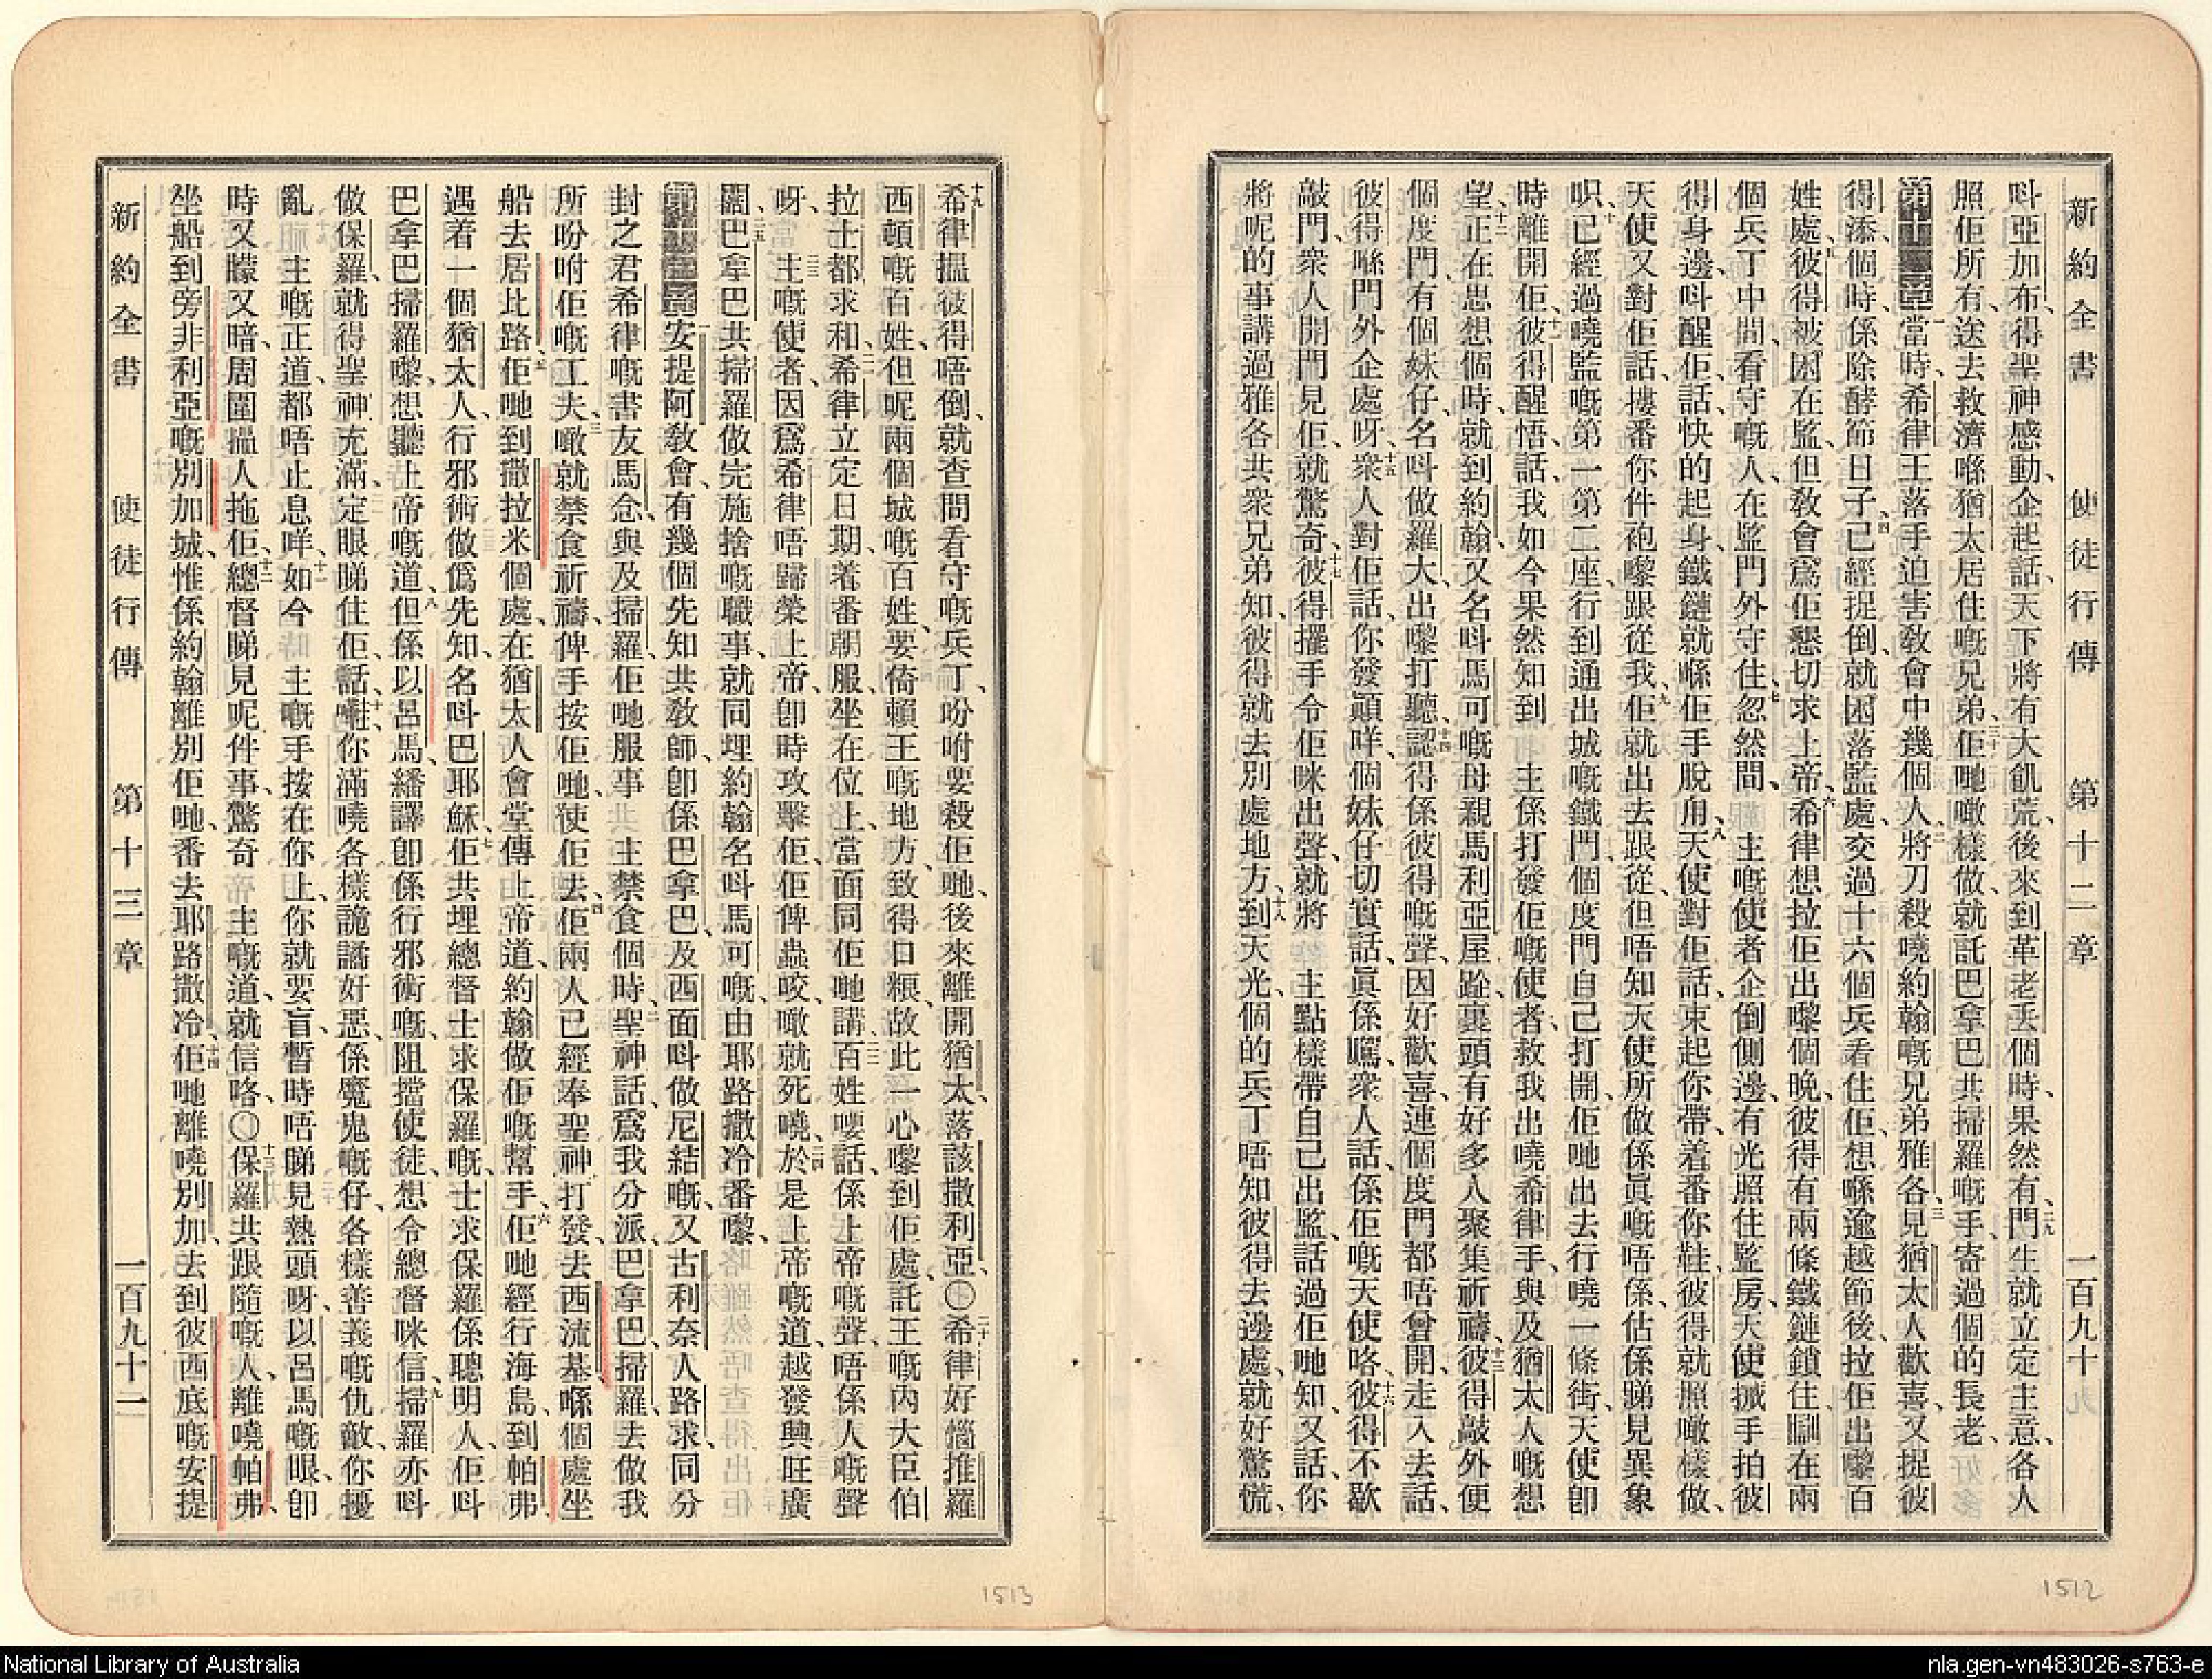 新約全書 使徒行傳 第十二章 一百九十
呌亞加布得聖神感動、企起話、天下將有大飢荒、後來到革老丟個時、果然有、二九門生就立定主意、各人
照佢所有、送去救濟喺猶太居住嘅兄弟、三十佢哋噉樣做、就託巴拿巴共掃羅嘅手、寄過個的長老、
第十二章 一當時、希律王落手迫害敎會中幾個人、二將刀殺曉約翰嘅兄弟雅各、三見猶太人歡喜、又捉彼
得添、個時係除酵節日子、四已經捉倒、就困落監處、交過十六個兵看住佢、想喺逾越節後、拉佢出嚟百
姓處、五彼得被困在監、但敎會爲佢懇切求上帝、六希律想拉佢出嚟個晚、彼得有兩條鐵鏈鎖住、瞓在兩
個兵丁中間、看守嘅人、在監門外守住、七忽然間、主嘅使者企倒側邊、有光照住監房、天使搣手拍彼
得身邊、呌醒佢、話、快的起身、鐵鏈就喺佢手脫甩、八天使對佢話、束起你帶、着番你鞋、彼得就照噉樣做、
天使又對佢話、摟番你件袍、嚟跟從我、九佢就出去跟從、但唔知天使所做係眞嘅唔係、估係睇見異象
呮、十已經過曉監嘅第一第二座、行到通出城嘅鐵門、個度門自己打開、佢哋出去、行曉一條街、天使卽
時離開佢、十一彼得醒悟、話、我如今果然知到 主係打發佢嘅使者、救我出曉希律手、與及猶太人嘅想
望、十二正在思想個時、就到約翰、又名呌馬可嘅母親馬利亞屋𨀣、裏頭有好多人聚集祈禱、十三彼得敲外便
個度門、有個妹仔、名呌做羅大、出嚟打聽、十四認得係彼得嘅聲、因好歡喜、連個度門都唔曾開、走入去話、
彼得喺門外企處呀、十五衆人對佢話、你發顚咩、個妹仔切實話、眞係囑、衆人話、係佢嘅天使咯、十六彼得不歇
敲門、衆人開門見佢、就驚奇、十七彼得擺手令佢咪出聲、就將 主點樣帶自己出監、話過佢哋知、又話、你
將呢的事講過雅各共衆兄弟知、彼得就去別處地方、十八到天光、個的兵丁唔知彼得去邊處、就好驚慌、
十九希律搵彼得唔倒、就查問看守嘅兵丁、吩咐要殺佢哋、後來離開猶太、落該撒利亞、〇二十希律好惱推羅
西頓嘅百姓、但呢兩個城嘅百姓、要倚賴王嘅地方、致得口粮、故此一心嚟到佢處、託王嘅內大臣伯
拉士都求和、二一希律立定日期、着番朝服、坐在位上、當面同佢哋講、二二百姓嘤話、係上帝嘅聲、唔係人嘅聲
呀、二三主嘅使者、因爲希律唔歸榮上帝、卽時攻擊佢、佢俾蟲咬、噉就死曉、二四於是上帝嘅道、越發興旺廣
闊、二五巴拿巴共掃羅做完施捨嘅職事、就同埋約翰名呌馬可嘅、由耶路撒冷番嚟、
第十三章 一安提阿敎會、有幾個先知共敎師、卽係巴拿巴、及西面呌做尼結嘅、又古利奈人路求、同分
封之君希律嘅書友馬念、與及掃羅、佢哋服事 主禁食個時、二聖神話、爲我分派巴拿巴掃羅、去做我
所吩咐佢嘅工夫、三噉就禁食祈禱、俾手按佢哋、使佢去、四佢兩人已經奉聖神打發、去西流基、喺個處坐
船去居比路、五佢哋到撒拉米個處、在猶太人會堂傳上帝道、約翰做佢嘅幫手、六佢哋經行海島、到帕弗
遇着一個猶太人、行邪術做僞先知、名呌巴耶穌、七佢共埋總督士求保羅嘅、士求保羅係聰明人、佢呌
巴拿巴掃羅嚟、想聽上帝嘅道、八但係以呂馬、繙譯卽係行邪術嘅、阻擋使徒、想令總督咪信、九掃羅亦呌
做保羅、就得聖神充滿、定眼睇住佢、話、十囄、你滿曉各樣詭譎好惡、係魔鬼嘅仔、各樣善義嘅仇敵、你擾
亂 主嘅正道、都唔止息咩、十一如今 主嘅手按在你上、你就要盲、暫時唔睇見熱頭呀、以呂馬嘅眼、卽
時又矇又暗、周圍搵人拖佢、十二總督睇見呢件事、驚奇 主嘅道、就信咯、〇十三保羅共跟隨嘅人、離曉帕弗、
坐船到旁非利亞嘅別加城、惟係約翰離別佢哋、番去耶路撒冷、十四佢哋離曉別加、去到彼西底嘅安提
新約全書 使徒行傳 第十三章 一百九十一
1513
1512
National Library of Australia
nla.gen-vn483026-s763-e